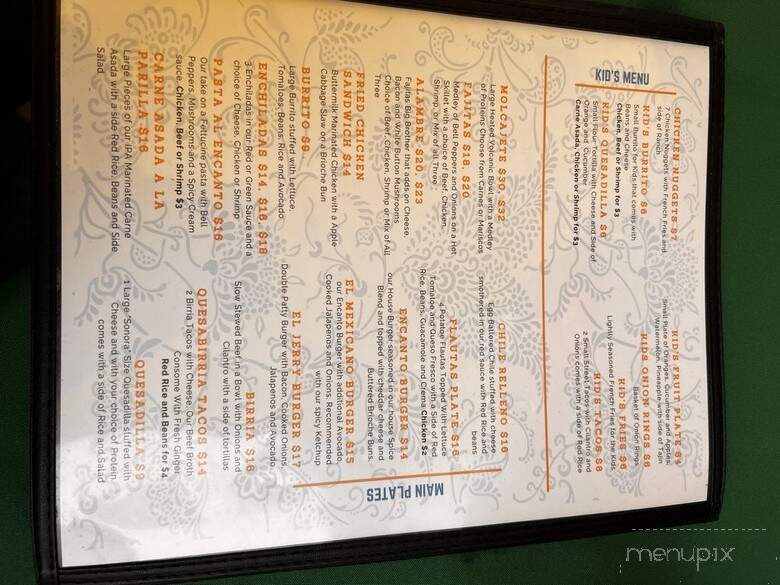 KID'S MENU
CHICKEN NUGGETS $7
7 Chicken Nuggets with French Fries and
side of Ranch
KID'S BURRITO $6
Small Burrito for Kids that comes with
Beans and Cheese
Chicken, Beef or Shrimp for $3
KID'S QUESADILLA $6
Small Flour Tortilla with Cheese and Side of
Orange and Cucumber
Carne Asada, Chicken or Shrimp for $3
KID'S FRUIT PLATE $4
Small Plate of Oranges, Cucumber and Apples,
Watermelon, Pineapple with side of Tajin
KID'S ONION RINGS $6
Basket of Onion Rings
KID'S FRIES $6
Lightly Seasoned French Fries for the Kids
KID'S TACOS $6
2 Small Street Tacos with Cilantro and
Onions comes with a side of Red Rice
MAIN PLATES
MOLCAJETE $30, $32
Large Heated Volcanic Bowl with a Medley
of Proteins Choose From Carnes or Mariscos
FAJITAS $18, $20
Medley of Bell Peppers and Onions on a Hot
Skillet with a choice of Beef, Chicken,
Shrimp, or Mix of all Three
ALAMBRE $20, $23
Fajitas Big Brother that adds on Cheese,
Bacon and White Button Mushrooms
Choice of Beef, Chicken, Shrimp or Mix of All
Three
FRIED CHICKEN
SANDWICH $14
Buttermilk Marinated Chicken with a Apple
Cabbage Slaw on a Brioche Bun
BURRITO $9
Large Burrito stuffed with Lettuce,
Tomatoes, Beans, Rice and Avocado
ENCHILADAS $14, $16, $18
3 Enchiladas in our Red or Green Sauce and a
choice of Cheese, Chicken or Shrimp
PASTA AL ENCANTO $16
Our take on a Fettucine pasta with Bell
Peppers, Mushrooms and a Spicy Cream
sauce, Chicken, Beef or Shrimp $3
CARNE ASADA A LA
PARILLA $16
Large Pieces of our IPA Marinated Carne
Asada with a side Red Rice, Beans and Side
Salad
CHILE RELLENO $16
Egg Battered Chile stuffed with cheese
smothered in our red sauce with Red Rice and
beans
FLAUTAS PLATE $16
4 Potatoe Flautas Topped With Lettuce
Tomatoe and Queso Fresco with a Side of Red
Rice, Beans, Guacamole and Crema Chicken $2
ENCANTO BURGER $14
our House Burger seasoned in our house Spice
Blend and topped with cheddar cheese and
Buttered Brioche Buns.
EL MEXICANO BURGER $15
our Encanto Burger with additional Avocado,
Cooked Jalapenos and Onions. Recommended
with our spicy Ketchup
EL JERRY BURGER $17
Double Patty Burger with Bacon, Cooked Onions,
Jalapenos and Avocado
BIRRIA $16
Slow Stewed Beef in a Bowl with Onions and
Cilantro with a side of tortillas
QUESABIRRIA TACOS $14
2 Birria Tacos with Cheese, Our Beef Broth
Consome With Fresh Ginger.
Red Rice and Beans for $4
QUESADILLA $9
1 Large "Sonora" Size Quesadilla stuffed with
Cheese and with your choice of Protein
comes with a side of Rice and Salad
menupix